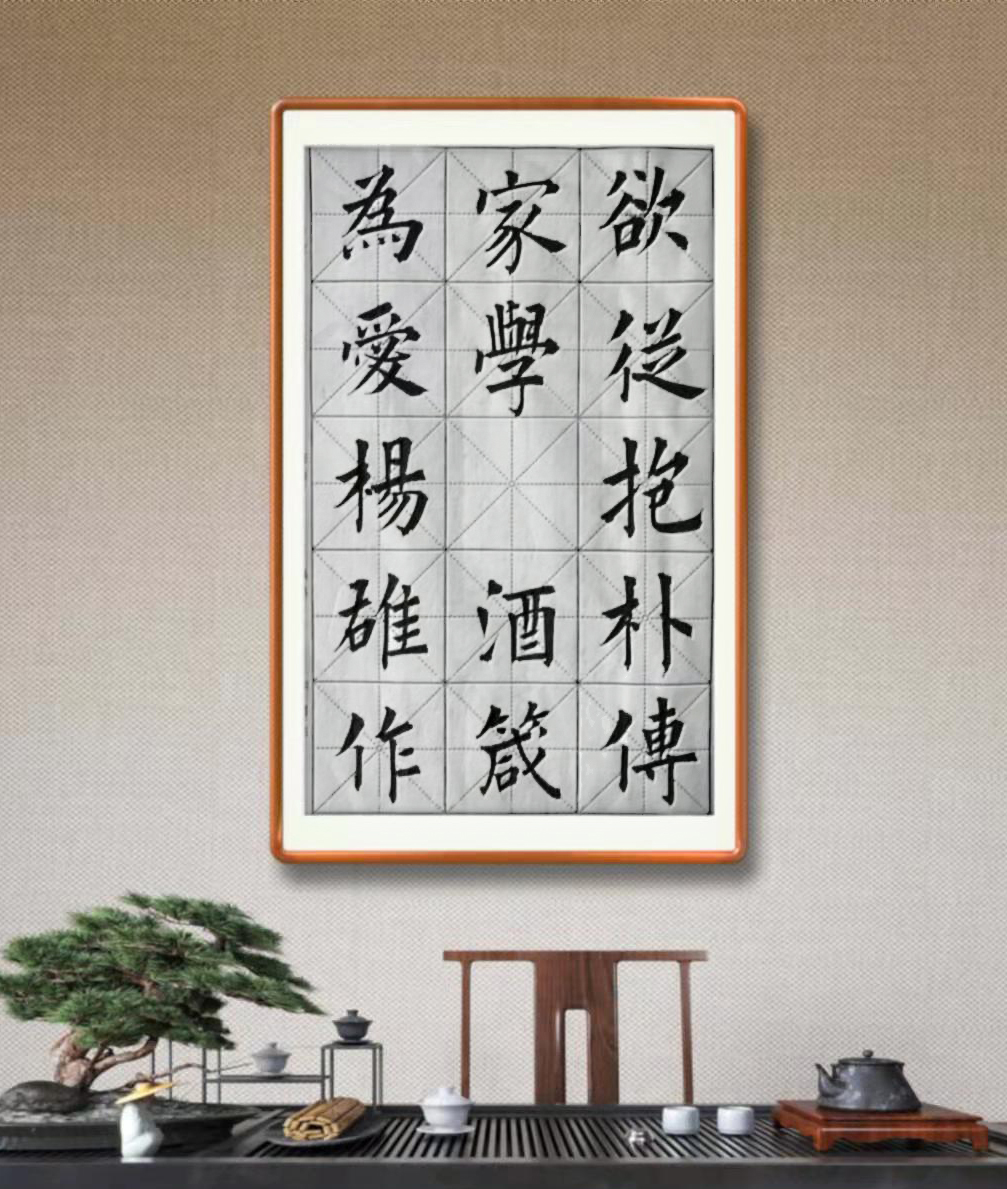 欲従抱朴傳
家學 酒箴
為愛楊雄作